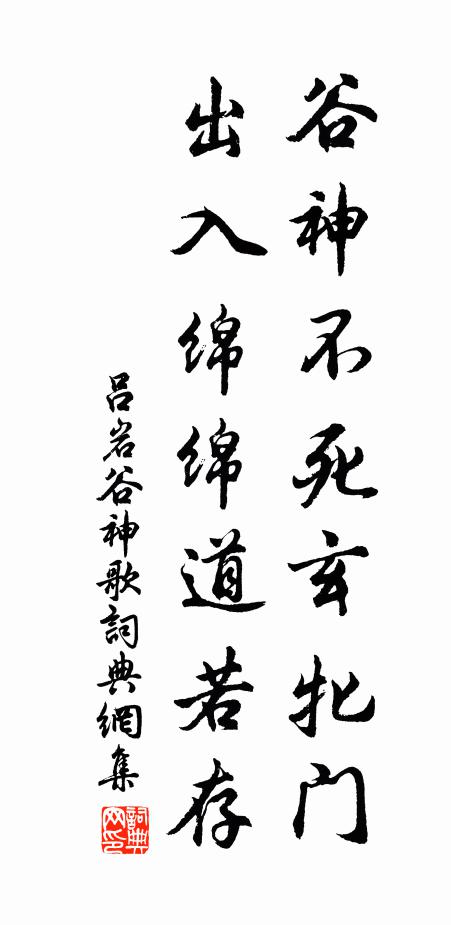 谷神不死玄牝门
出入绵绵道若存
吕岩谷神歌詞典網集
詞典网印